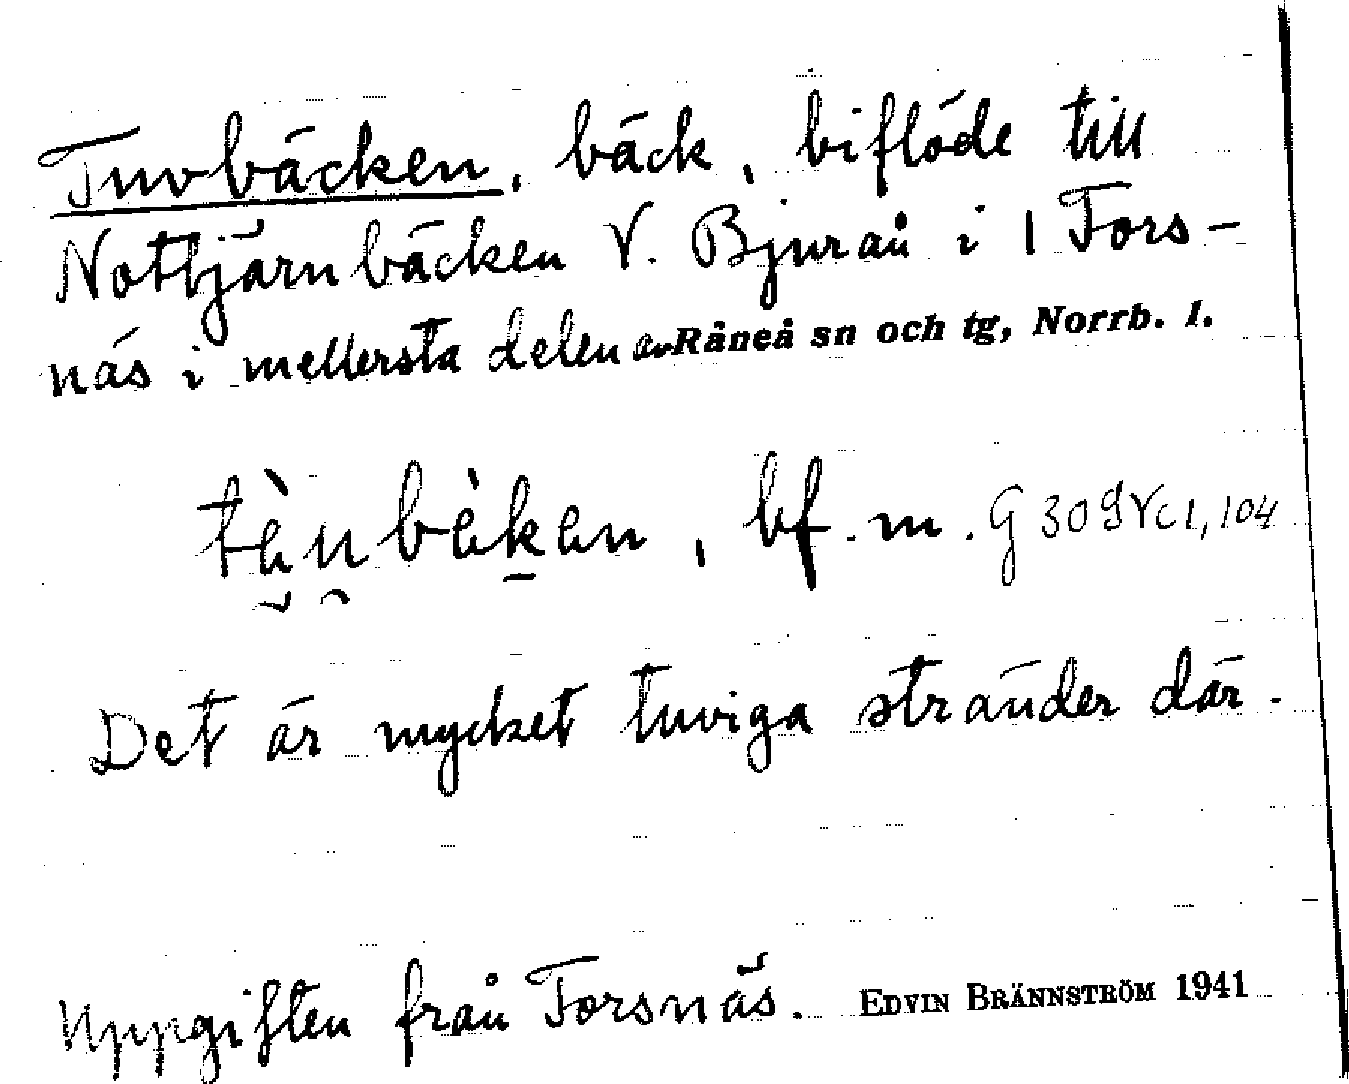 Tuvbäcken, bäck, biflöde till
Nottjärnbäcken V. Bjuraå i 1 Fors-
näs i mellersta delen av Råneå sn och tg, Norrb. l.
bf. m. G 309 V c 1, 104
Det är mycket tuviga stränder där.
Uppgiften från Forsnäs. EDVIN BRÄNNSTRÖM 1941